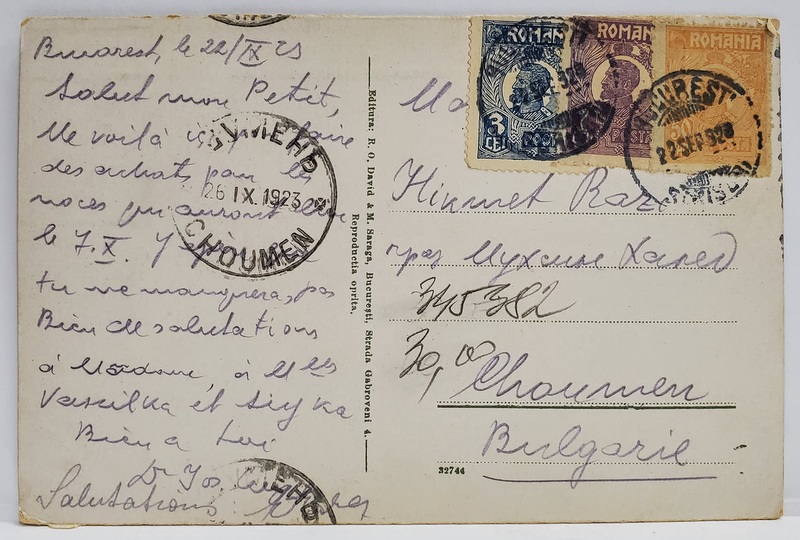 Bucarest, le 22/IX 23
Salut mon Petit,
Me voilà ici faire
des achats pour les
noces qui auront lieu
le 7.X. J'
tu ne manquera, pas
Bien de salutations
à Madame à Mlles
Vassilka et
Bien a toi
Dr Jos.
Salutations
ШУМЕНЪ
26 IX.1923
CHOUMEN
ШУМЕНЪ
Editura: R. O. David & M. Saraga, București, Strada Gabroveni 4.
Reproductia oprita.
ROMAN
3
ROMAN
POSTA
ROMANIA
50
BUCUREȘTI
22 SEP 923
Hikmet
през Мухсин Халед
345-382
30,00
Choumen
Bulgarie
32744